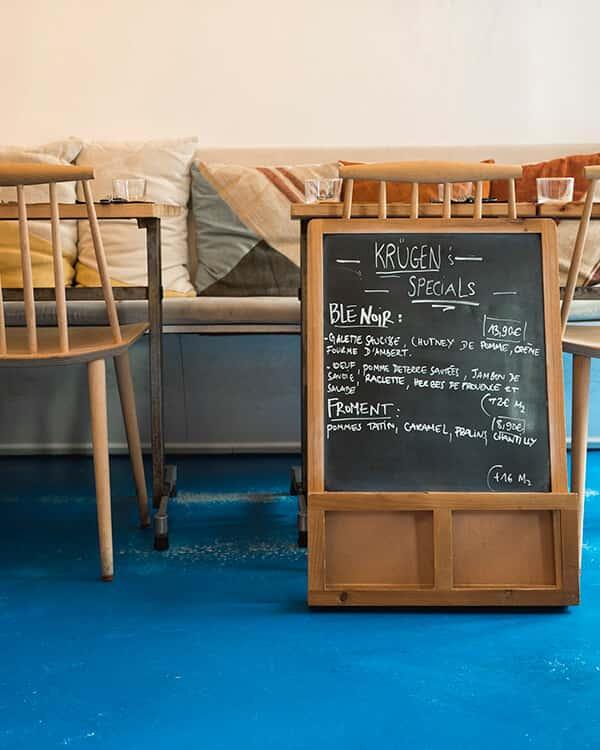 KRÜGEN's
SPECIALS
BLE NOIR :
13,90€
- GALETTE SAUCISSE, CHUTNEY DE POMME, CRÈME
FOURME D'AMBERT.
- OEUF, POMME DETERRE SAUTÉES, JAMBON DE
SAVOIE, RACLETTE, HERBES DE PROVENCE ET
SALADE
(+2€ M2)
FROMENT :
8,90€
POMMES TATIN, CARAMEL, PRALIN, CHANTILLY
(+1€ M2)